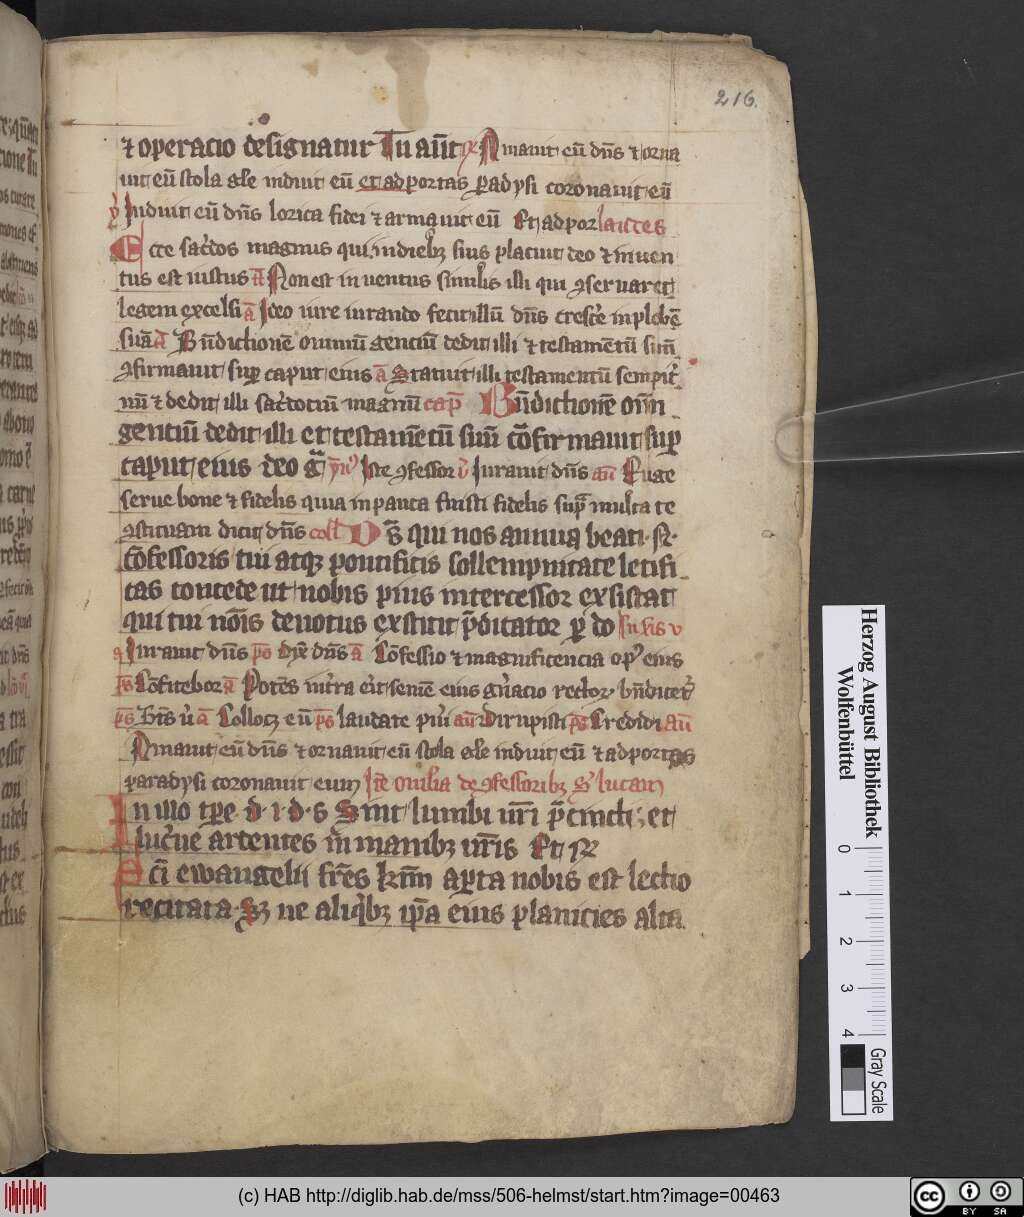 216.
⁊ operacio designatur Tu aūt Amauit eū dn̄s ⁊ orna
uit eū stola gl̄e induit eū et ad portas paradysi coronauit eū
Induit eū dn̄s lorica fidei ⁊ armauit eū Et ad por laudes
Ecce sac̄dos magnus qui indieb; suis placuit deo ⁊ inuen
tus est iustus a Non est inuentus similis illi qui ꝯseruaret
legem excelsi a Ideo iure iurando fecit illū dn̄s cresc̄e inplebē
suā a Bn̄dictionē omniū gentiū dedit illi ⁊ testamētū suū
ꝯfirmauit sup caput eius a Statuit illi testamentū sempit̄
nū ⁊ dedit illi sac̄dociū magnū cap Bn̄dictionē om̄n
gentiū dedit illi et testamētū suū cōfirmauit sup
caput eius deo g̃ ymꝰ Iste ꝯfessor v̄ Iurauit dn̄s an̄ Euge
serue bone ⁊ fidelis quia in pauca fuisti fidelis sup̄ multa te
ꝯstituam dicit dn̄s coll Ds̄ qui nos annua beati .N.
cōfessoris tui atq; pontificis sollempnitate letifi
cas concede ut nobis pius intercessor existat
qui tui nōis deuotus extitit p̄dicator p do
Iurauit dn̄s ps̄ Dix̄ dn̄s a Cōfessio ⁊ magnificencia opꝰ eius
ps̄ Cōfitebor a Potēs in t̄ra er̄it semē eius gn̄acio rectoꝝ bn̄dicet̄
ps̄ Bt̄s ū a Colloc; eū ps̄ laudate an̄ Dirupisti ps̄ Credidi an̄
Amauit eū dn̄s ⁊ ornauit eū stola gl̄e induit eū ⁊ ad portas
paradysi coronauit eum Omilia de ꝯfessorib; lucam
In illo tp̄e d. i. d. s Sint lumbi ur̄i p̄cincti; et
luc̄ne ardentes in manib; ur̄is Et
Sc̄i ewangelii fr̄es km̄ ap̄ta nobis est lectio
recitata S; ne aliq̄b; ip̄a eius planicies alta
Herzog August Bibliothek
Wolfenbüttel
0 1 2 3 4
Gray Scale
(c) HAB http://diglib.hab.de/mss/506-helmst/start.htm?image=00463
cc BY SA